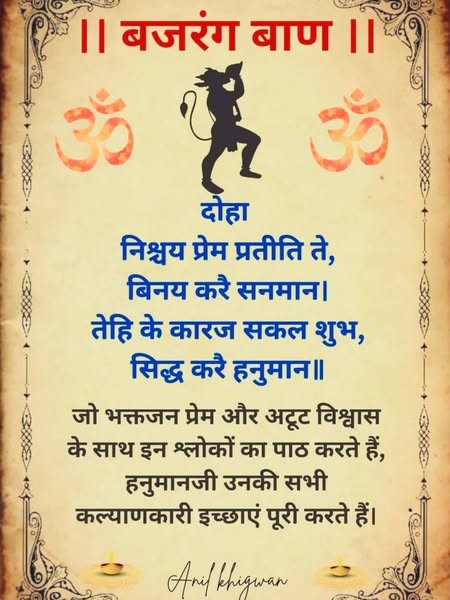 || बजरंग बाण ||
ॐ ॐ
दोहा
निश्चय प्रेम प्रतीति ते,
बिनय करै सनमान।
तेहि के कारज सकल शुभ,
सिद्ध करै हनुमान॥
जो भक्तजन प्रेम और अटूट विश्वास
के साथ इन श्लोकों का पाठ करते हैं,
हनुमानजी उनकी सभी
कल्याणकारी इच्छाएं पूरी करते हैं।
Anil khigwan